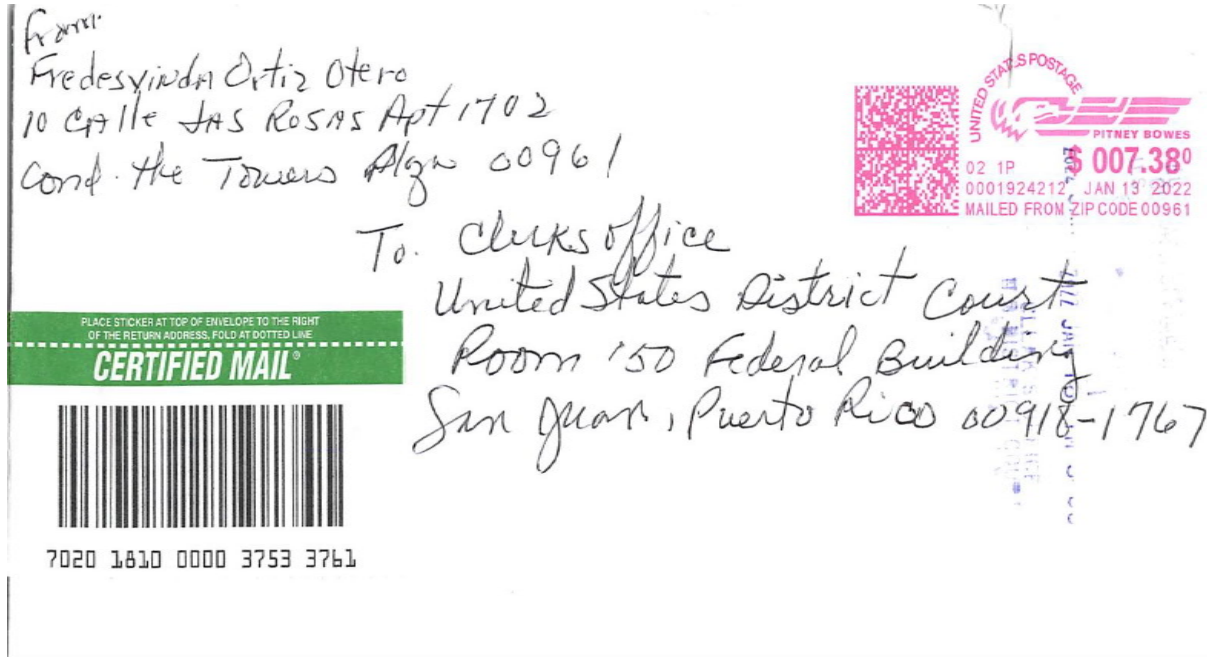 From:
Fredesvinda Ortiz Otero
10 CAlle LAS ROSAS Apt 1702
Cond. the Towers 00961
UNITED STATES POSTAGE
PITNEY BOWES
$ 007.38⁰
02 1P
0001924212 JAN 13 2022
MAILED FROM ZIP CODE 00961
To. Clerks office
United States District Court
Room 150 Federal Building
San Juan, Puerto Rico 00918-1767
PLACE STICKER AT TOP OF ENVELOPE TO THE RIGHT
OF THE RETURN ADDRESS, FOLD AT DOTTED LINE
CERTIFIED MAIL®
7020 1810 0000 3753 3761